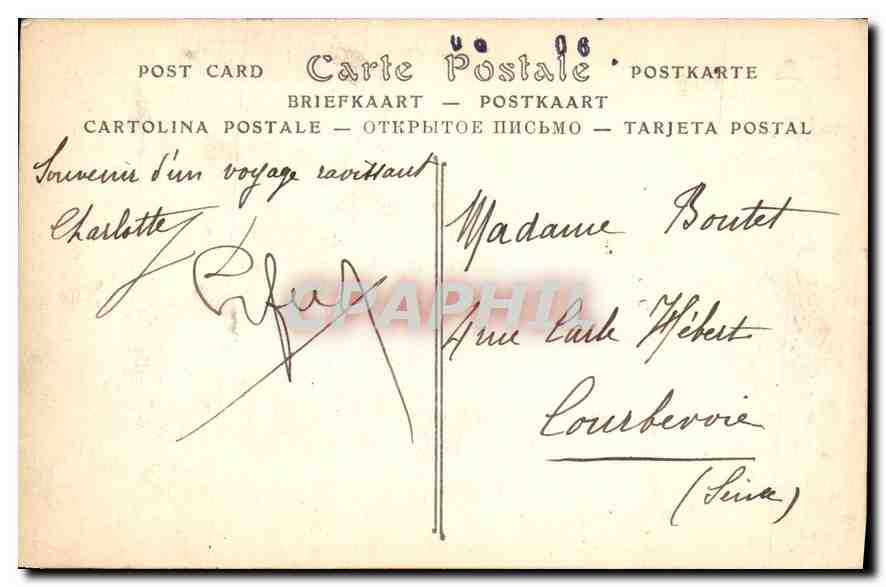 POST CARD Carte Postale POSTKARTE
BRIEFKAART — POSTKAART
CARTOLINA POSTALE — ОТКРЫТОЕ ПИСЬМО — TARJETA POSTAL
Souvenir d'un voyage ravissant
Charlotte
Madame Boutet
4 rue Carle Hébert
Courbevoie
(Seine)
CPAPHIL